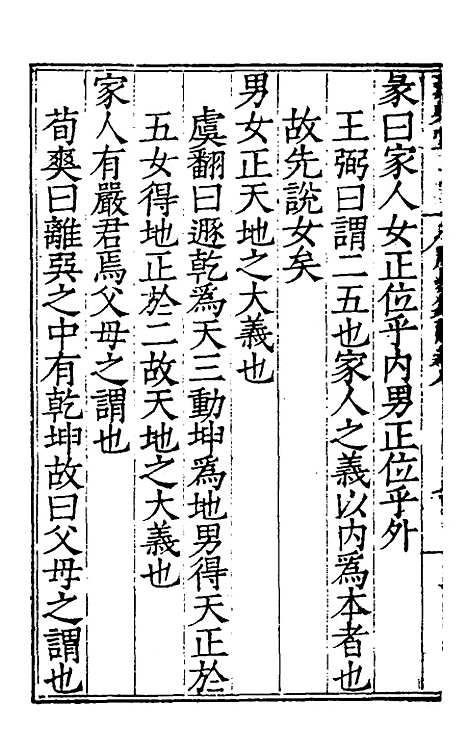 彖曰家人女正位乎内男正位乎外
王弼曰謂二五也家人之義以内爲本者也
故先說女矣
男女正天地之大義也
虞翻曰遯乾爲天三動坤爲地男得天正於
五女得地正於二故天地之大義也
家人有嚴君焉父母之謂也
荀爽曰離巽之中有乾坤故曰父母之謂也